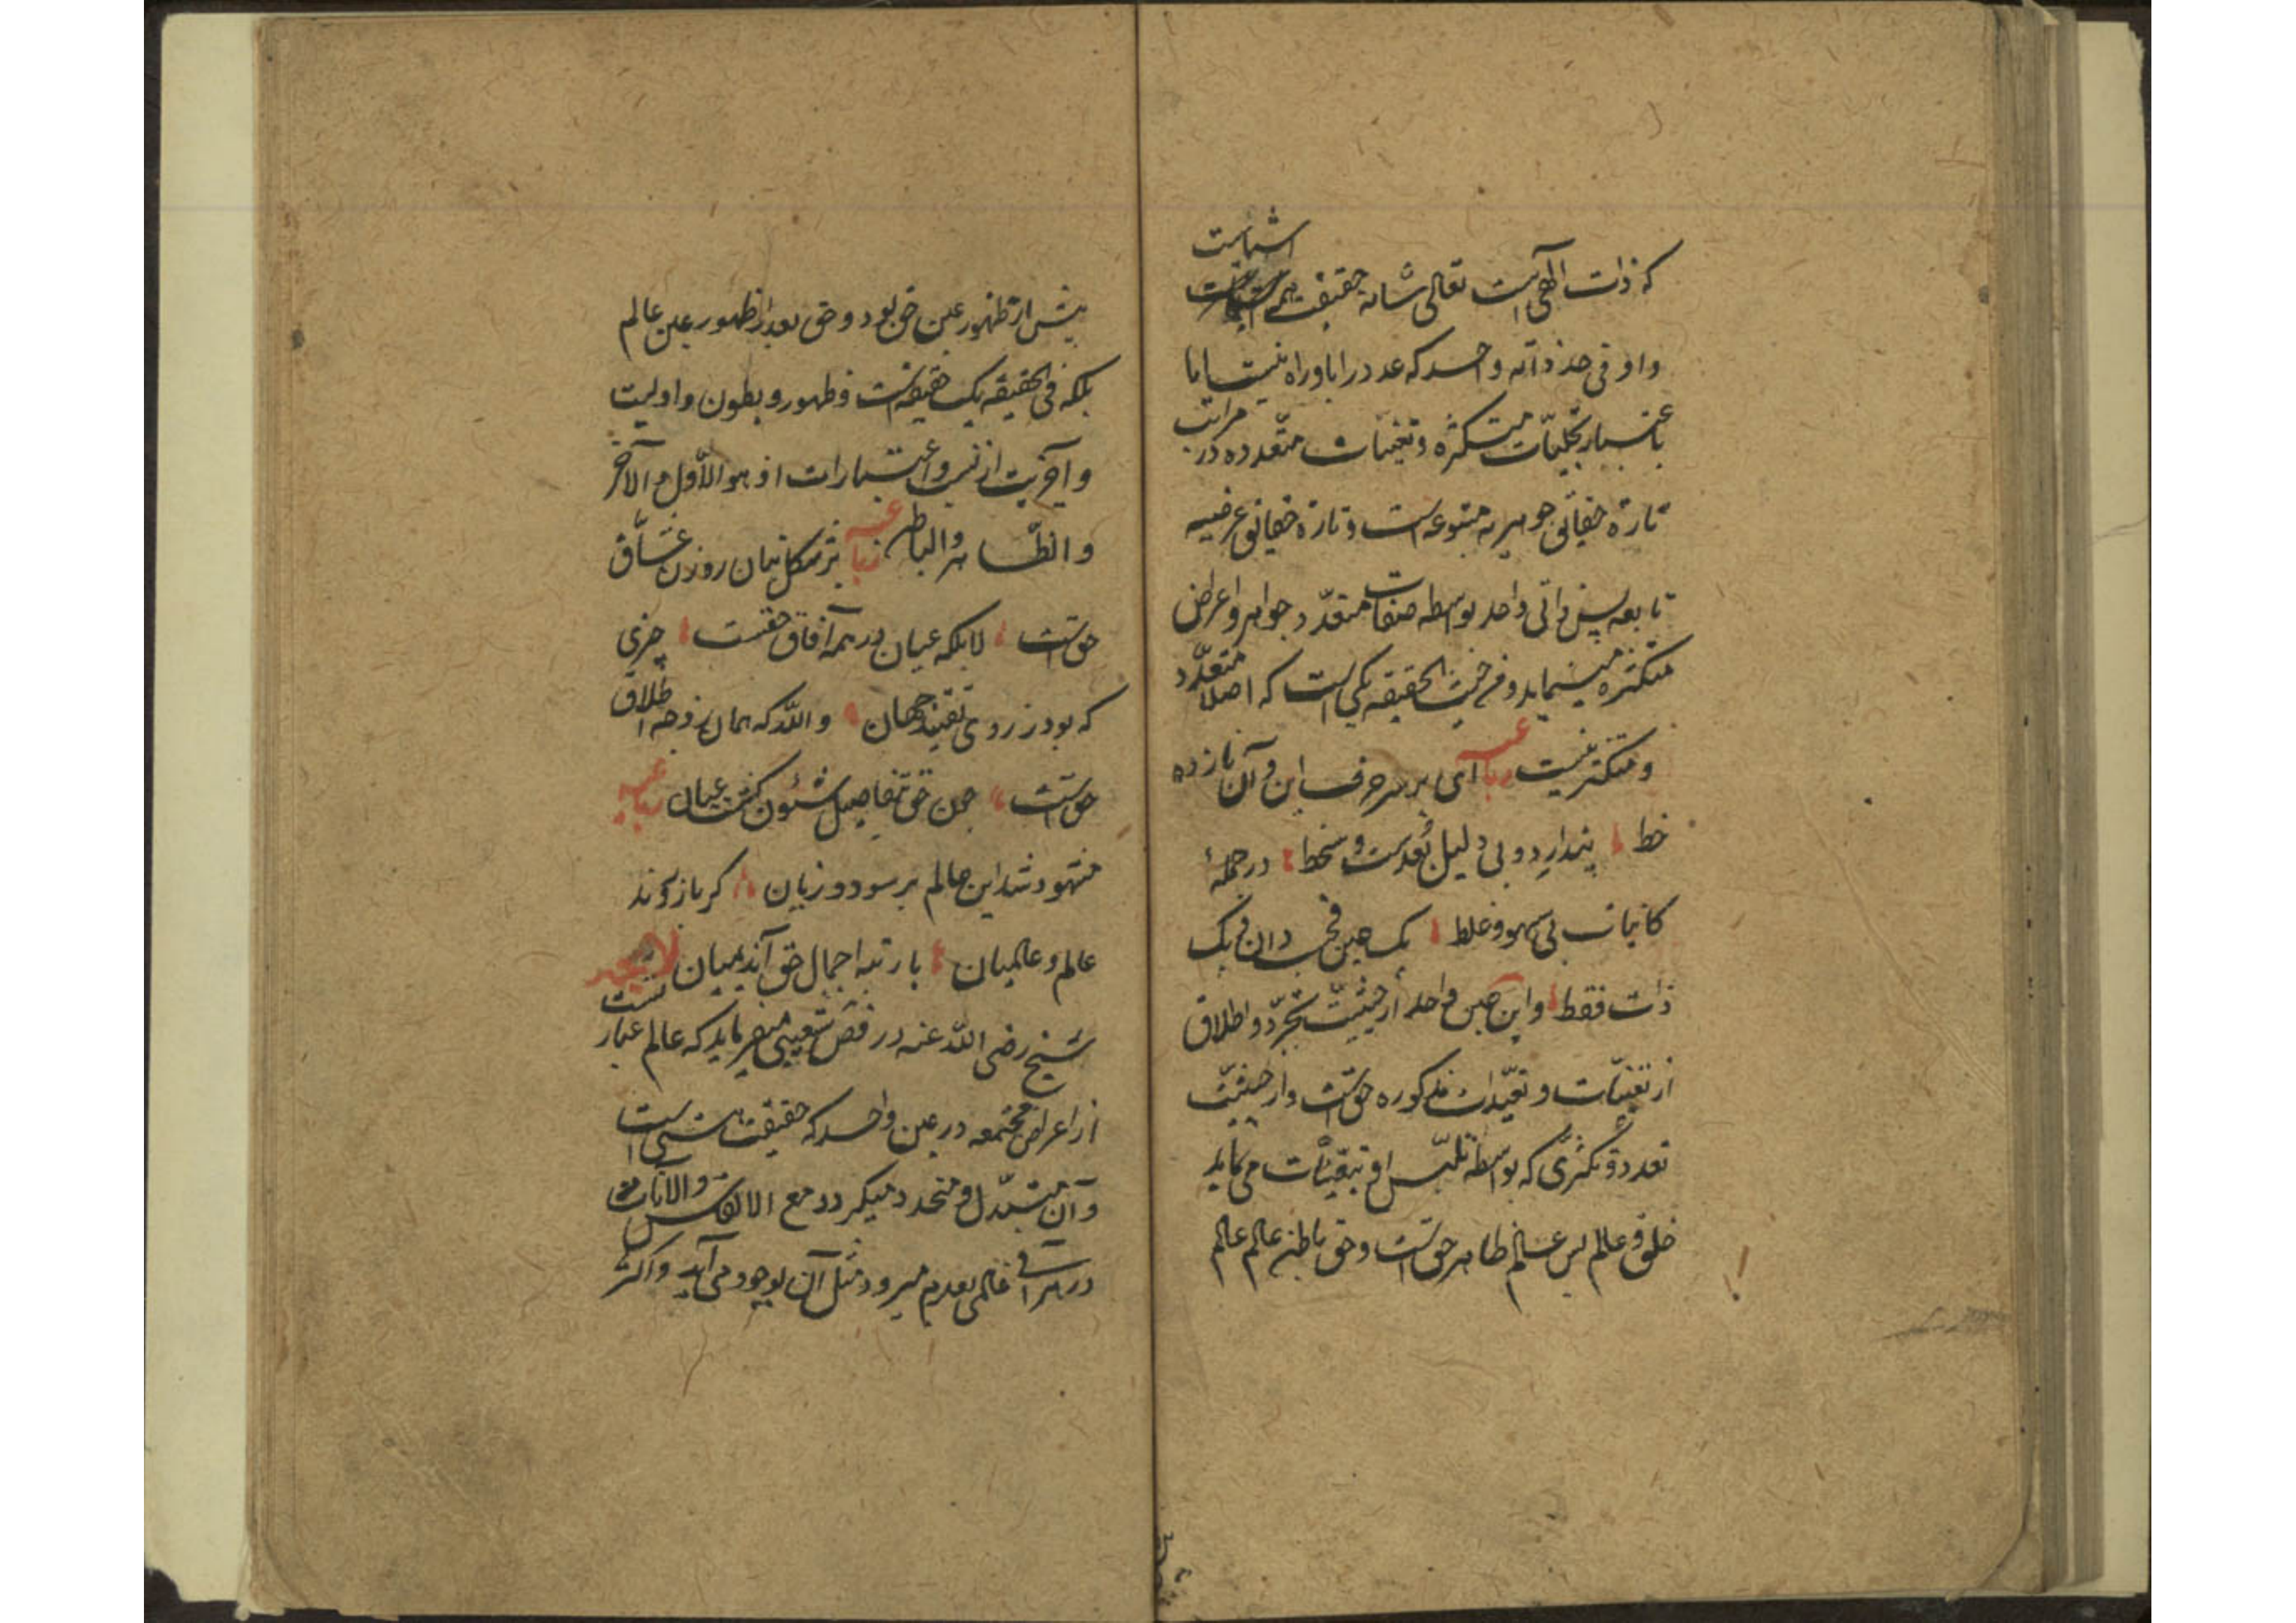 اشیاست
که ذات الهی است تعالی شانه حقیقت همه
واو فی حد ذاته واحد که عدد را باو راه نیست اما
باعتبار تجلیات متکثره و تعینات متعدده در مراتب
تارة حقائق جوهریه متبوعه است و تارة حقائق عرضیه
تابعه پس ذاتی واحد بواسطه صفات متعدد جواهر و اعراض
متکثره مینماید و من حیث الحقیقه یکی است که اصلا متعدد
و متکثر نیست رباعیه ای بر سر حرف این و آن نازده
خط پندار دویی دلیل بعدست و سخط در جمله
کاینات بی سهو و غلط یک عین فحسب دان و یک
ذات فقط و این عین واحد از حیثیت تجرد و اطلاق
از تعینات و تقیدات مذکوره حق است و از حیثیت
تعدد و تکثری که بواسطه تلبس او بتعینات می نماید
خلق و عالم پس عالم ظاهر حق است و حق باطن عالم عالم
پیش از ظهور عین حق بود و حق بعد از ظهور عین عالم
بلکه فی الحقیقه یک حقیقه است و ظهور و بطون و اولیت
و آخریت از نسب و اعتبارات او هو الاول و الآخر
و الظاهر و الباطن رباعیه بر شکل بتان رهزن عشاق
حق است لا بلکه عیان در همه آفاق حقست چیزی
که بود ز روی تقیید جهان والله که همان ز وجه اطلاق
حق است چون حق بتفاصیل شئون گشت عیان رباعیه
مشهود شد این عالم بر سود و زیان گر باز روند
عالم و عالمیان با رتبه اجمال حق آید بمیان لایحه
شیخ رضی الله عنه در فص شعیبی میفرماید که عالم عبارتست
از اعراض مجتمعه در عین واحد که حقیقت هستی است
و آن متبدل و متجدد میگردد مع الانفاس و الآنات
در هر آنی عالمی بعدم میرود و مثل آن بوجود می آید و اکثر